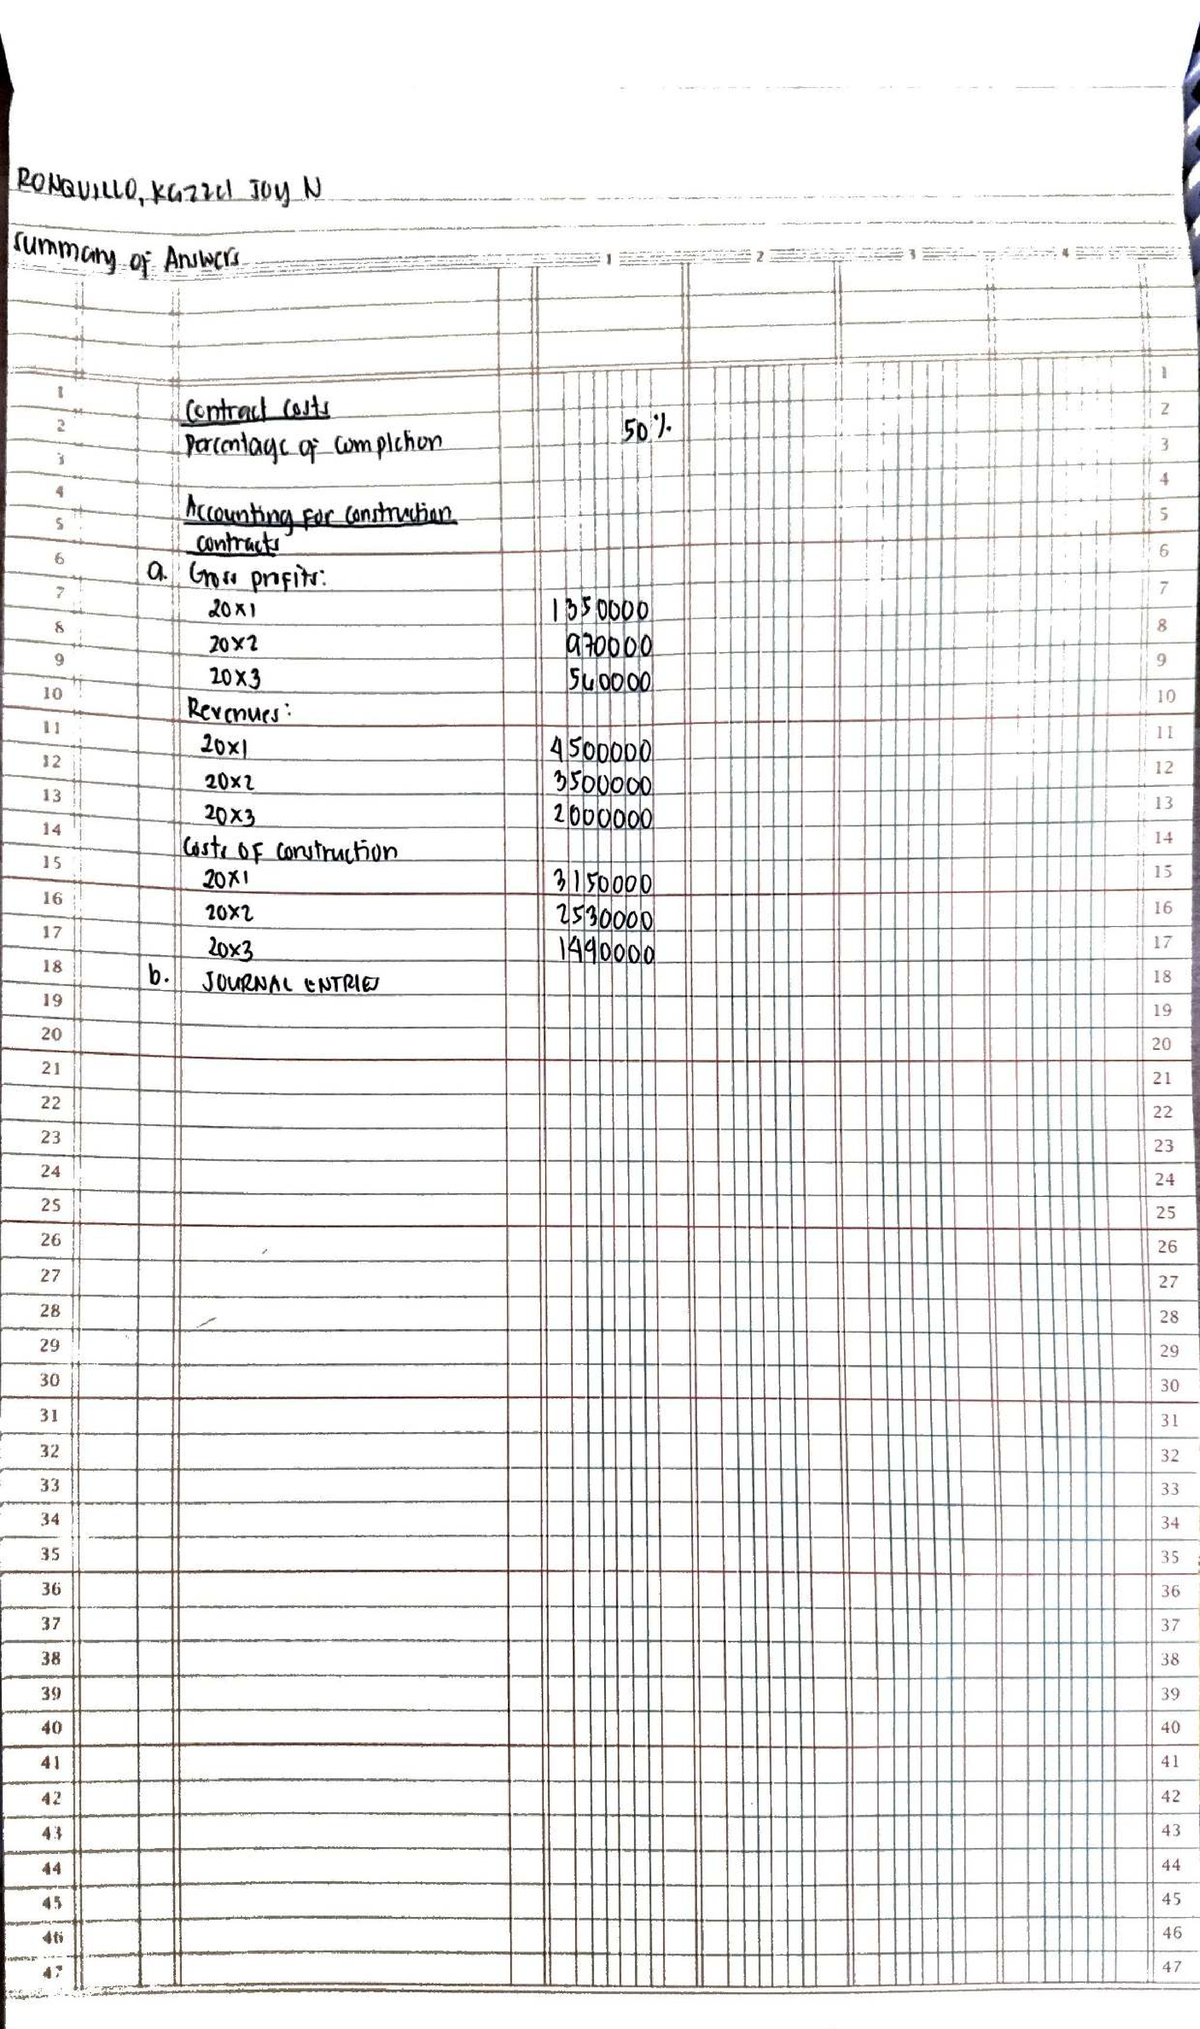 RONQUILLO, Kazzel Joy N
Summary of Answers
1 2 3 4
1 1
2 Contract Costs 2
3 Percentage of Completion 50% 3
4 4
5 Accounting For Construction 5
6 Contracts 6
7 a. Gross profits: 7
8 20x1 1350000 8
9 20x2 970000 9
10 20x3 540000 10
11 Revenues: 11
12 20x1 4500000 12
13 20x2 3500000 13
14 20x3 2000000 14
15 Costs of construction 15
16 20x1 3150000 16
17 20x2 2530000 17
18 20x3 1490000 18
19 b. JOURNAL ENTRIES 19
20 20
21 21
22 22
23 23
24 24
25 25
26 26
27 27
28 28
29 29
30 30
31 31
32 32
33 33
34 34
35 35
36 36
37 37
38 38
39 39
40 40
41 41
42 42
43 43
44 44
45 45
46 46
47 47